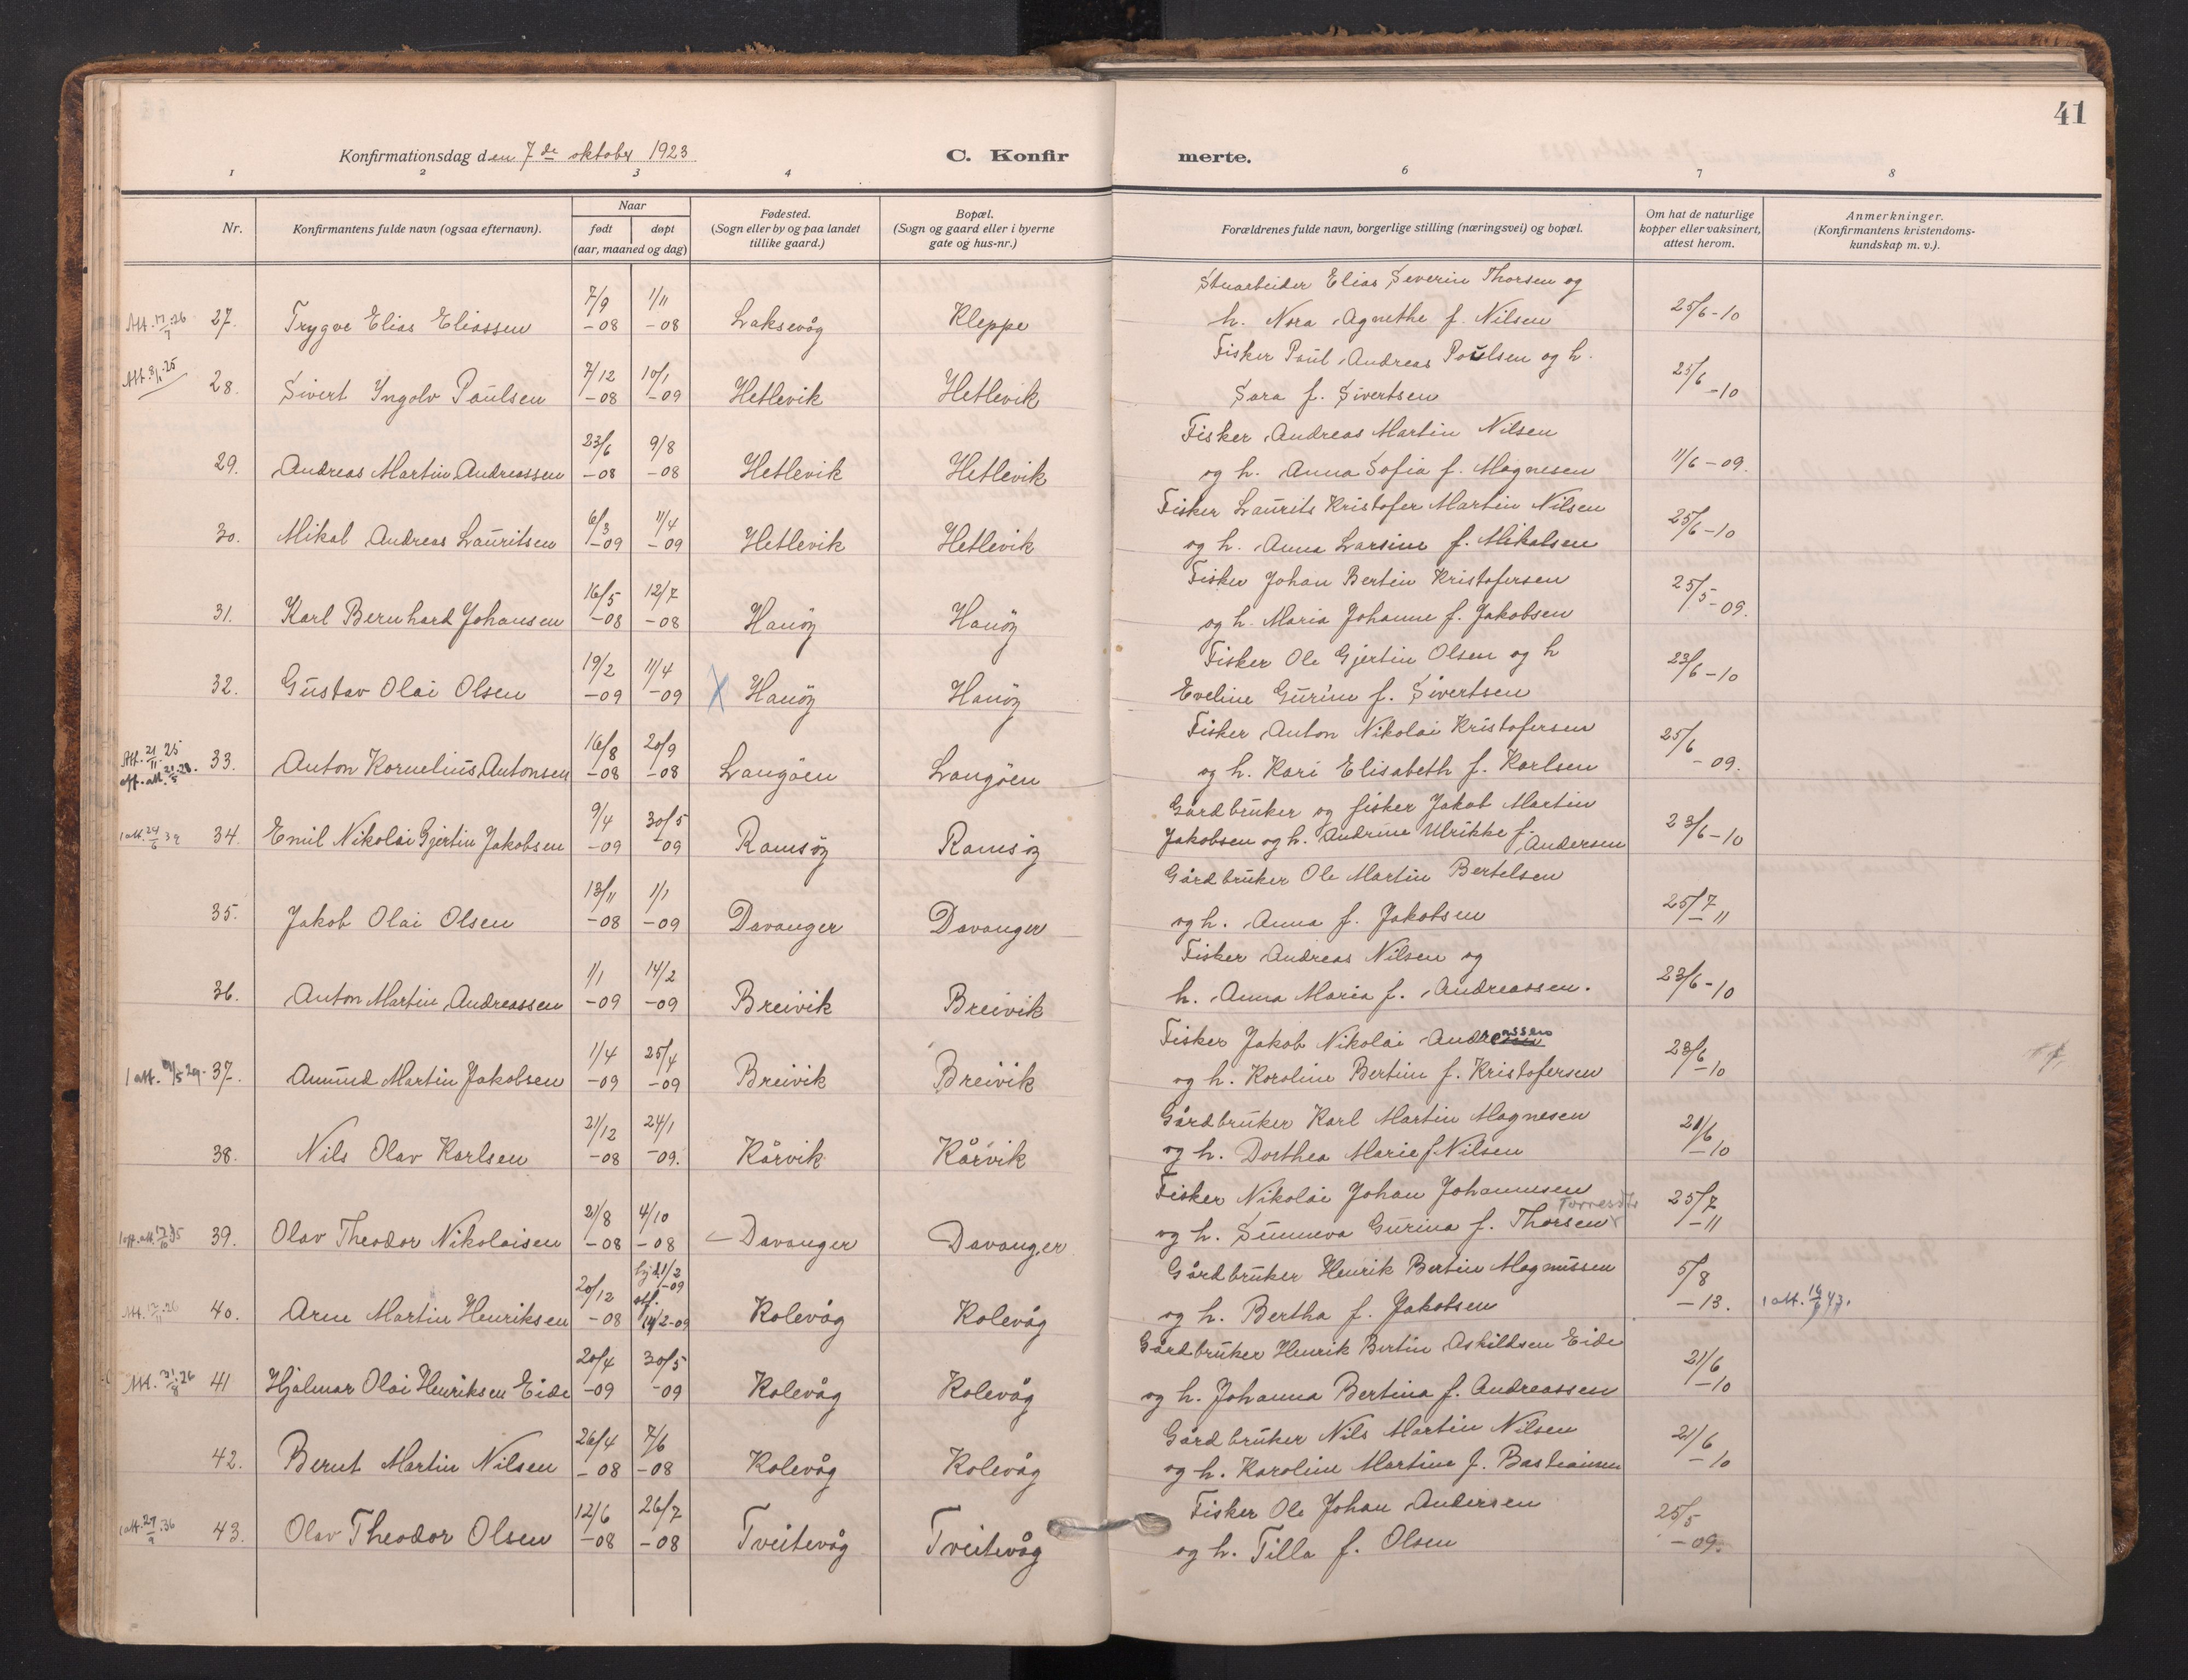 41
Konfirmationsdag den 7de oktober 1923 C. Konfir merte.
1 2 3 4 6 7 8
Nr. Konfirmantens fulde navn (ogsaa efternavn). Naar født døpt (aar, maaned og dag) Fødested. (Sogn eller by og paa landet tillike gaard.) Bopæl. (Sogn og gaard eller i byerne gate og hus-nr.) Forældrenes fulde navn, borgerlige stilling (næringsvei) og bopæl. Om hat de naturlige kopper eller vaksinert, attest herom. Anmerkninger. (Konfirmantens kristendomskundskap m. v.).
Stuarbeider Elias Severin Thorsen og
Att. 17/7 26 27. Trygve Elias Eliassen 7/9 -08 1/11 -08 Laksevåg Kleppe h. Nora Agnethe f. Nilsen 25/6-10
Fisker Paul Andreas Poulsen og h.
Att. 8/1 25 28. Sivert Yngolv Paulsen 7/12 -08 10/1 -09 Hetlevik Hetlevik Sara f. Sivertsen 25/6 -10
Fisker Andreas Martin Nilsen
29. Andreas Martin Andreassen 23/6 -08 9/8 -08 Hetlevik Hetlevik og h. Anna Sofia f. Magnesen 11/6-09.
Fisker Laurits Kristofer Martin Nilsen
30. Mikal Andreas Lauritsen 6/3 -09 11/4 -09 Hetlevik Hetlevik og h. Anna Larsine f. Mikalsen 25/6-10
Fisker Johan Bertin Kristofersen
31. Karl Bernhard Johansen 16/5 -08 12/7 -08 Hanöy Hanöy og h. Maria Johanne f. Jakobsen 25/5-09.
Fisker Ole Gjertin Olsen og h
32. Gustav Olai Olsen 19/2 -09 11/4 -09 X Hanöy Hanöy Eveline Gurine f. Sivertsen 23/6-10
Fisker Anton Nikolai Kristofersen
Att. 21/11 25 off. att. 21/5 28. 33. Anton Kornelius Antonsen 16/8 -08 20/9 -08 Langöen Langöen og h. Kari Elisabeth f. Karlsen 25/6 -09.
Gårdbruker og fisker Jakob Martin
1 att. 24/6 39 34. Emil Nikolai Gjertin Jakobsen 9/4 -09 30/5 -09 Ramsöy Ramsöy Jakobsen og h. Andrine Ulrikke f. Andersen 23/6-10
Gårdbruker Ole Martin Bertelsen
35. Jakob Olai Olsen 13/11 -08 1/1 -09 Davanger Davanger og h. Anna f. Jakobsen 25/7 -11
Fisker Andreas Nilsen og
36. Anton Martin Andreassen 1/1 -09 14/2 -09 Breivik Breivik h. Anna Maria f. Andreassen. 23/6-10
Fisker Jakob Nikolai Andreassen
1 att. 29. 37. Amund Martin Jakobsen 1/4 -09 25/4 -09 Breivik Breivik og h. Karoline Bertine f. Kristofersen 23/6 -10
Gårdbruker Karl Martin Magnesen
38. Nils Olav Karlsen 21/12 -08 24/1 -09. Kårvik Kårvik og h. Dorthea Marie f. Nilsen 21/6 -10
Fisker Nikolai Johan Johannesen
1 off. att. 35 39. Olav Theodor Nikolaisen 21/8 -08 4/10 -08 Davanger Davanger og h. Sunneva Gurina f. Thorsen 25/7 -11
Gårdbruker Henrik Bertin Magnussen
Att. 26 40. Arne Martin Henriksen 20/12 -08 hjd. 1/2 -09 stf. 14/2-09 Kolevåg Kolevåg og h. Bertha f. Jakobsen 5/8 -13. 1 att. 16/6 43.
Gårdbruker Henrik Bertin Askildsen Eide
Att. 31/8 26 41 Hjalmar Olai Henriksen Eide 20/4 -09 30/5 -09 Kolevåg Kolevåg og h. Johanna Bertina f. Andreassen 21/6 -10
Gårdbruker Nils Martin Nilsen
42. Bernt Martin Nilsen 26/4 -08 7/6 -08 Kolevåg Kolevåg og h. Karoline Martine f. Bastiansen 21/6 -10
Fisker Ole Johan Andersen
1 att. 29/9 36 43. Olav Theodor Olsen 12/6 -08 26/7 -08 Tveitevåg Tveitevåg og h. Tilla f. Olsen 25/5 -09.